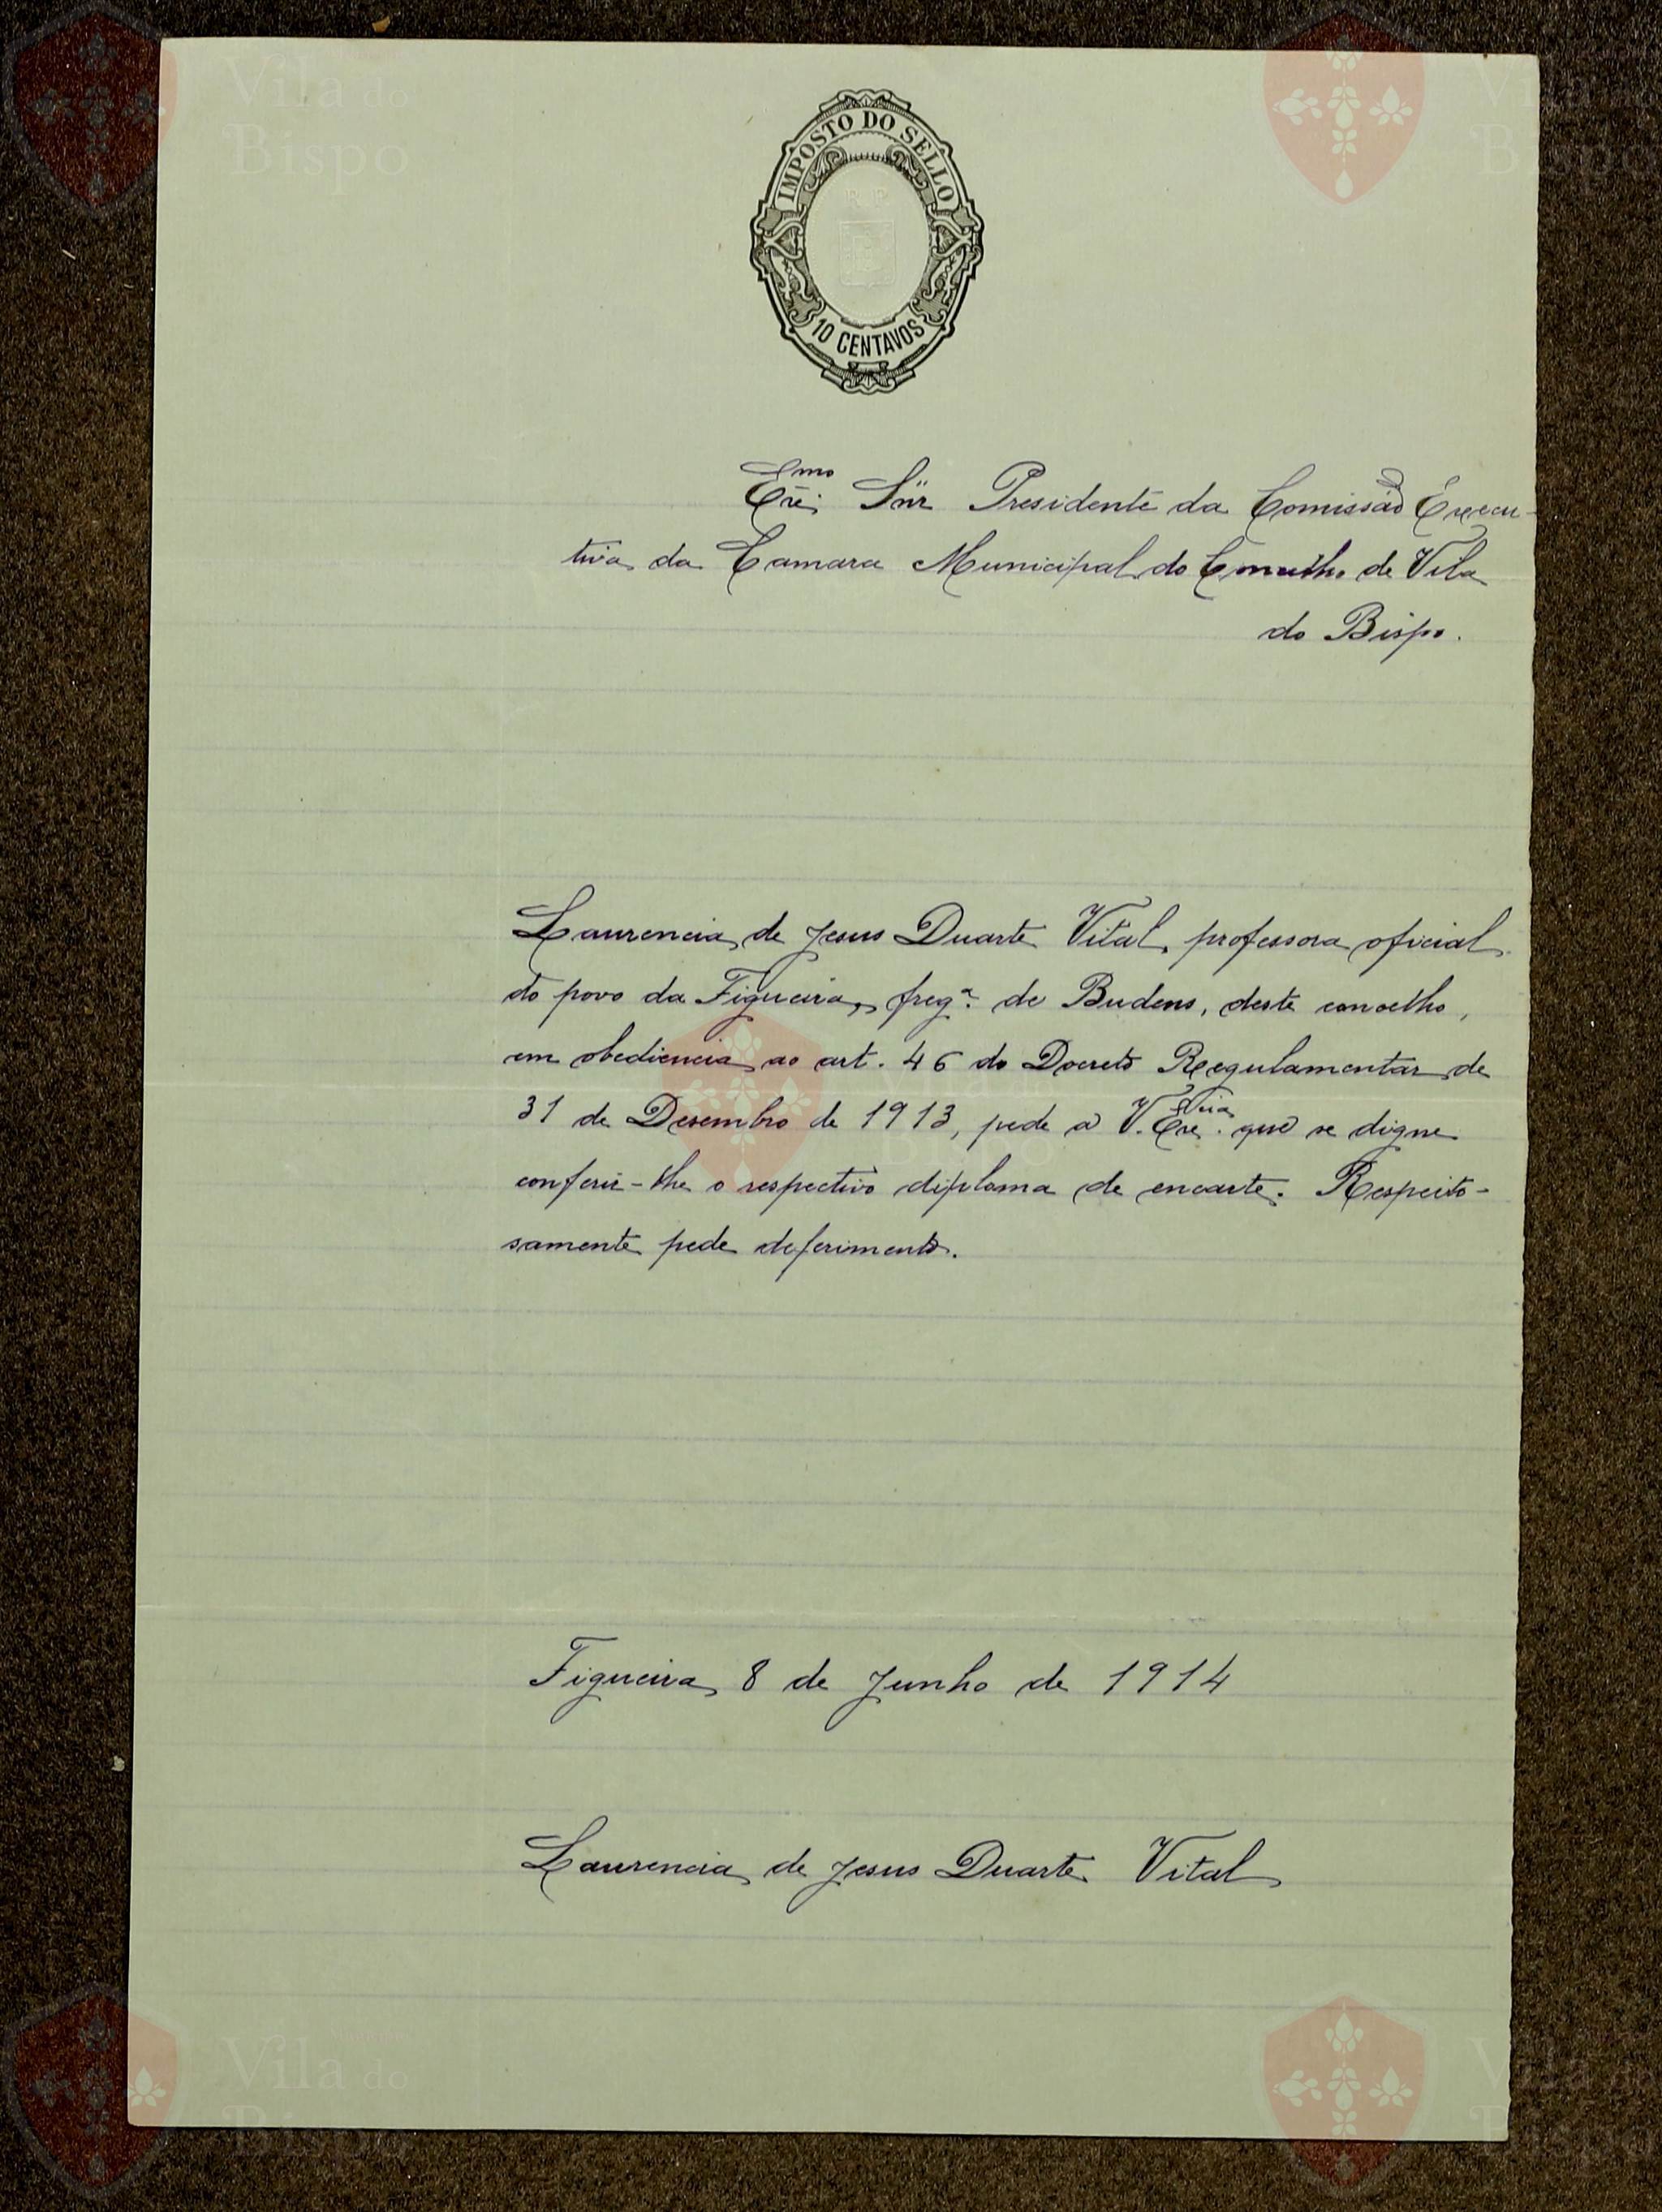 Vila do
Bispo
IMPOSTO DO SELLO
R P
10 CENTAVOS
Exmo Snr Presidente da Comissão Execu-
tiva da Camara Municipal do Concelho de Vila
do Bispo.
Laurencia de Jesus Duarte Vital, professora oficial
do povo da Figueira, fregª. de Budens, deste concelho,
em obediencia ao art. 46 do Decreto Regulamentar de
31 de Desembro de 1913, pede a V. Excia. que se digne
conferir-lhe o respectivo diploma de encarte. Respeito-
samente pede deferimento.
Figueira, 8 de Junho de 1914
Laurencia de Jesus Duarte Vital
Vila do